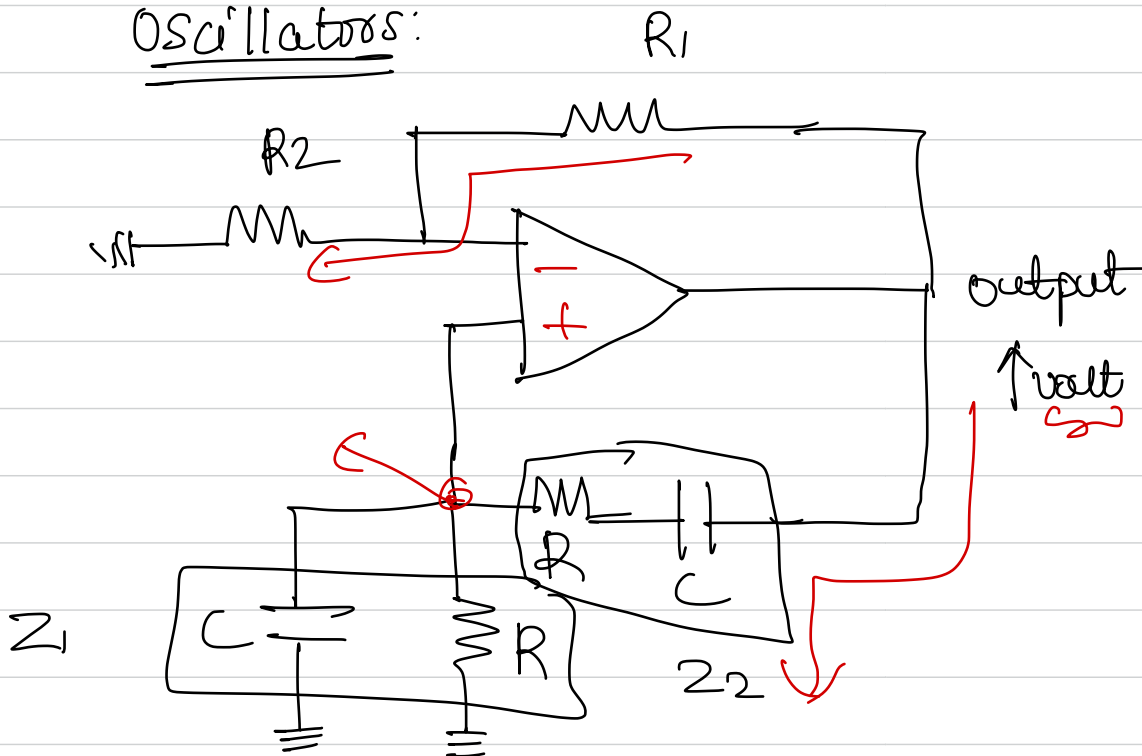 Oscillators:
R1
R2
−
+
output
↑ volt
R
C
Z1
C
R
Z2